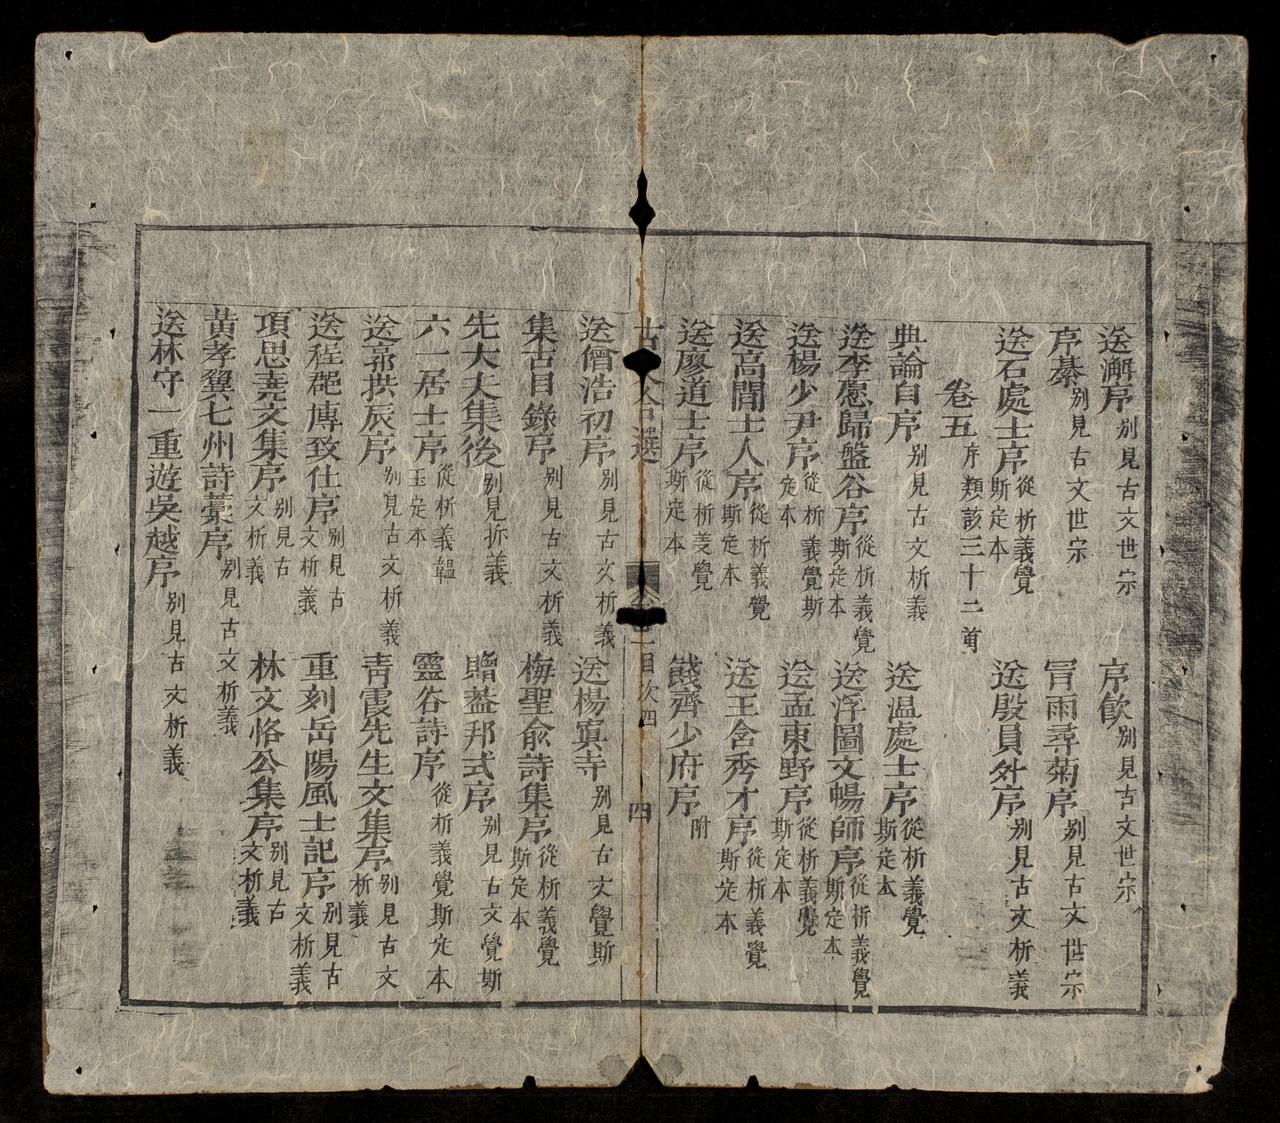 送澥序 别見古文世宗 序飲 别見古文世宗
序棊 别見古文世宗 冐雨尋菊序 别見古文世宗
送石處士序 從析義覺斯定本 送殷員外序 别見古文析義
卷五 序類該三十二首
典論自序 别見古文析義 送温處士序 從析義覺斯定本
送李愿歸盤谷序 從析義覺斯定本 送浮圖文暢師序 從析義覺斯定本
送楊少尹序 從析義覺斯定本 送孟東野序 從析義覺斯定本
送高閒士人序 從析義覺斯定本 送王含秀才序 從析義覺斯定本
送廖道士序 從析義覺斯定本 餞齊少府序 附
古 合選 目次四 四
送僧浩初序 别見古文析義 送楊寘寺 别見古文覺斯
集古目錄序 别見古文析義 梅聖俞詩集序 從析義覺斯定本
先大夫集後 别見析義 贈葢邦式序 别見古文覺斯
六一居士序 從析義韞玉定本 靈谷詩序 從析義覺斯定本
送郭拱辰序 别見古文析義 靑霞先生文集序 别見古文析義
送程郡博致仕序 别見古文析義 重刻岳陽風士記序 别見古文析義
項思堯文集序 别見古文析義 林文恪公集序 别見古文析義
黄孝翼七州詩藁序 别見古文析義
送林守一重遊吳越序 别見古文析義